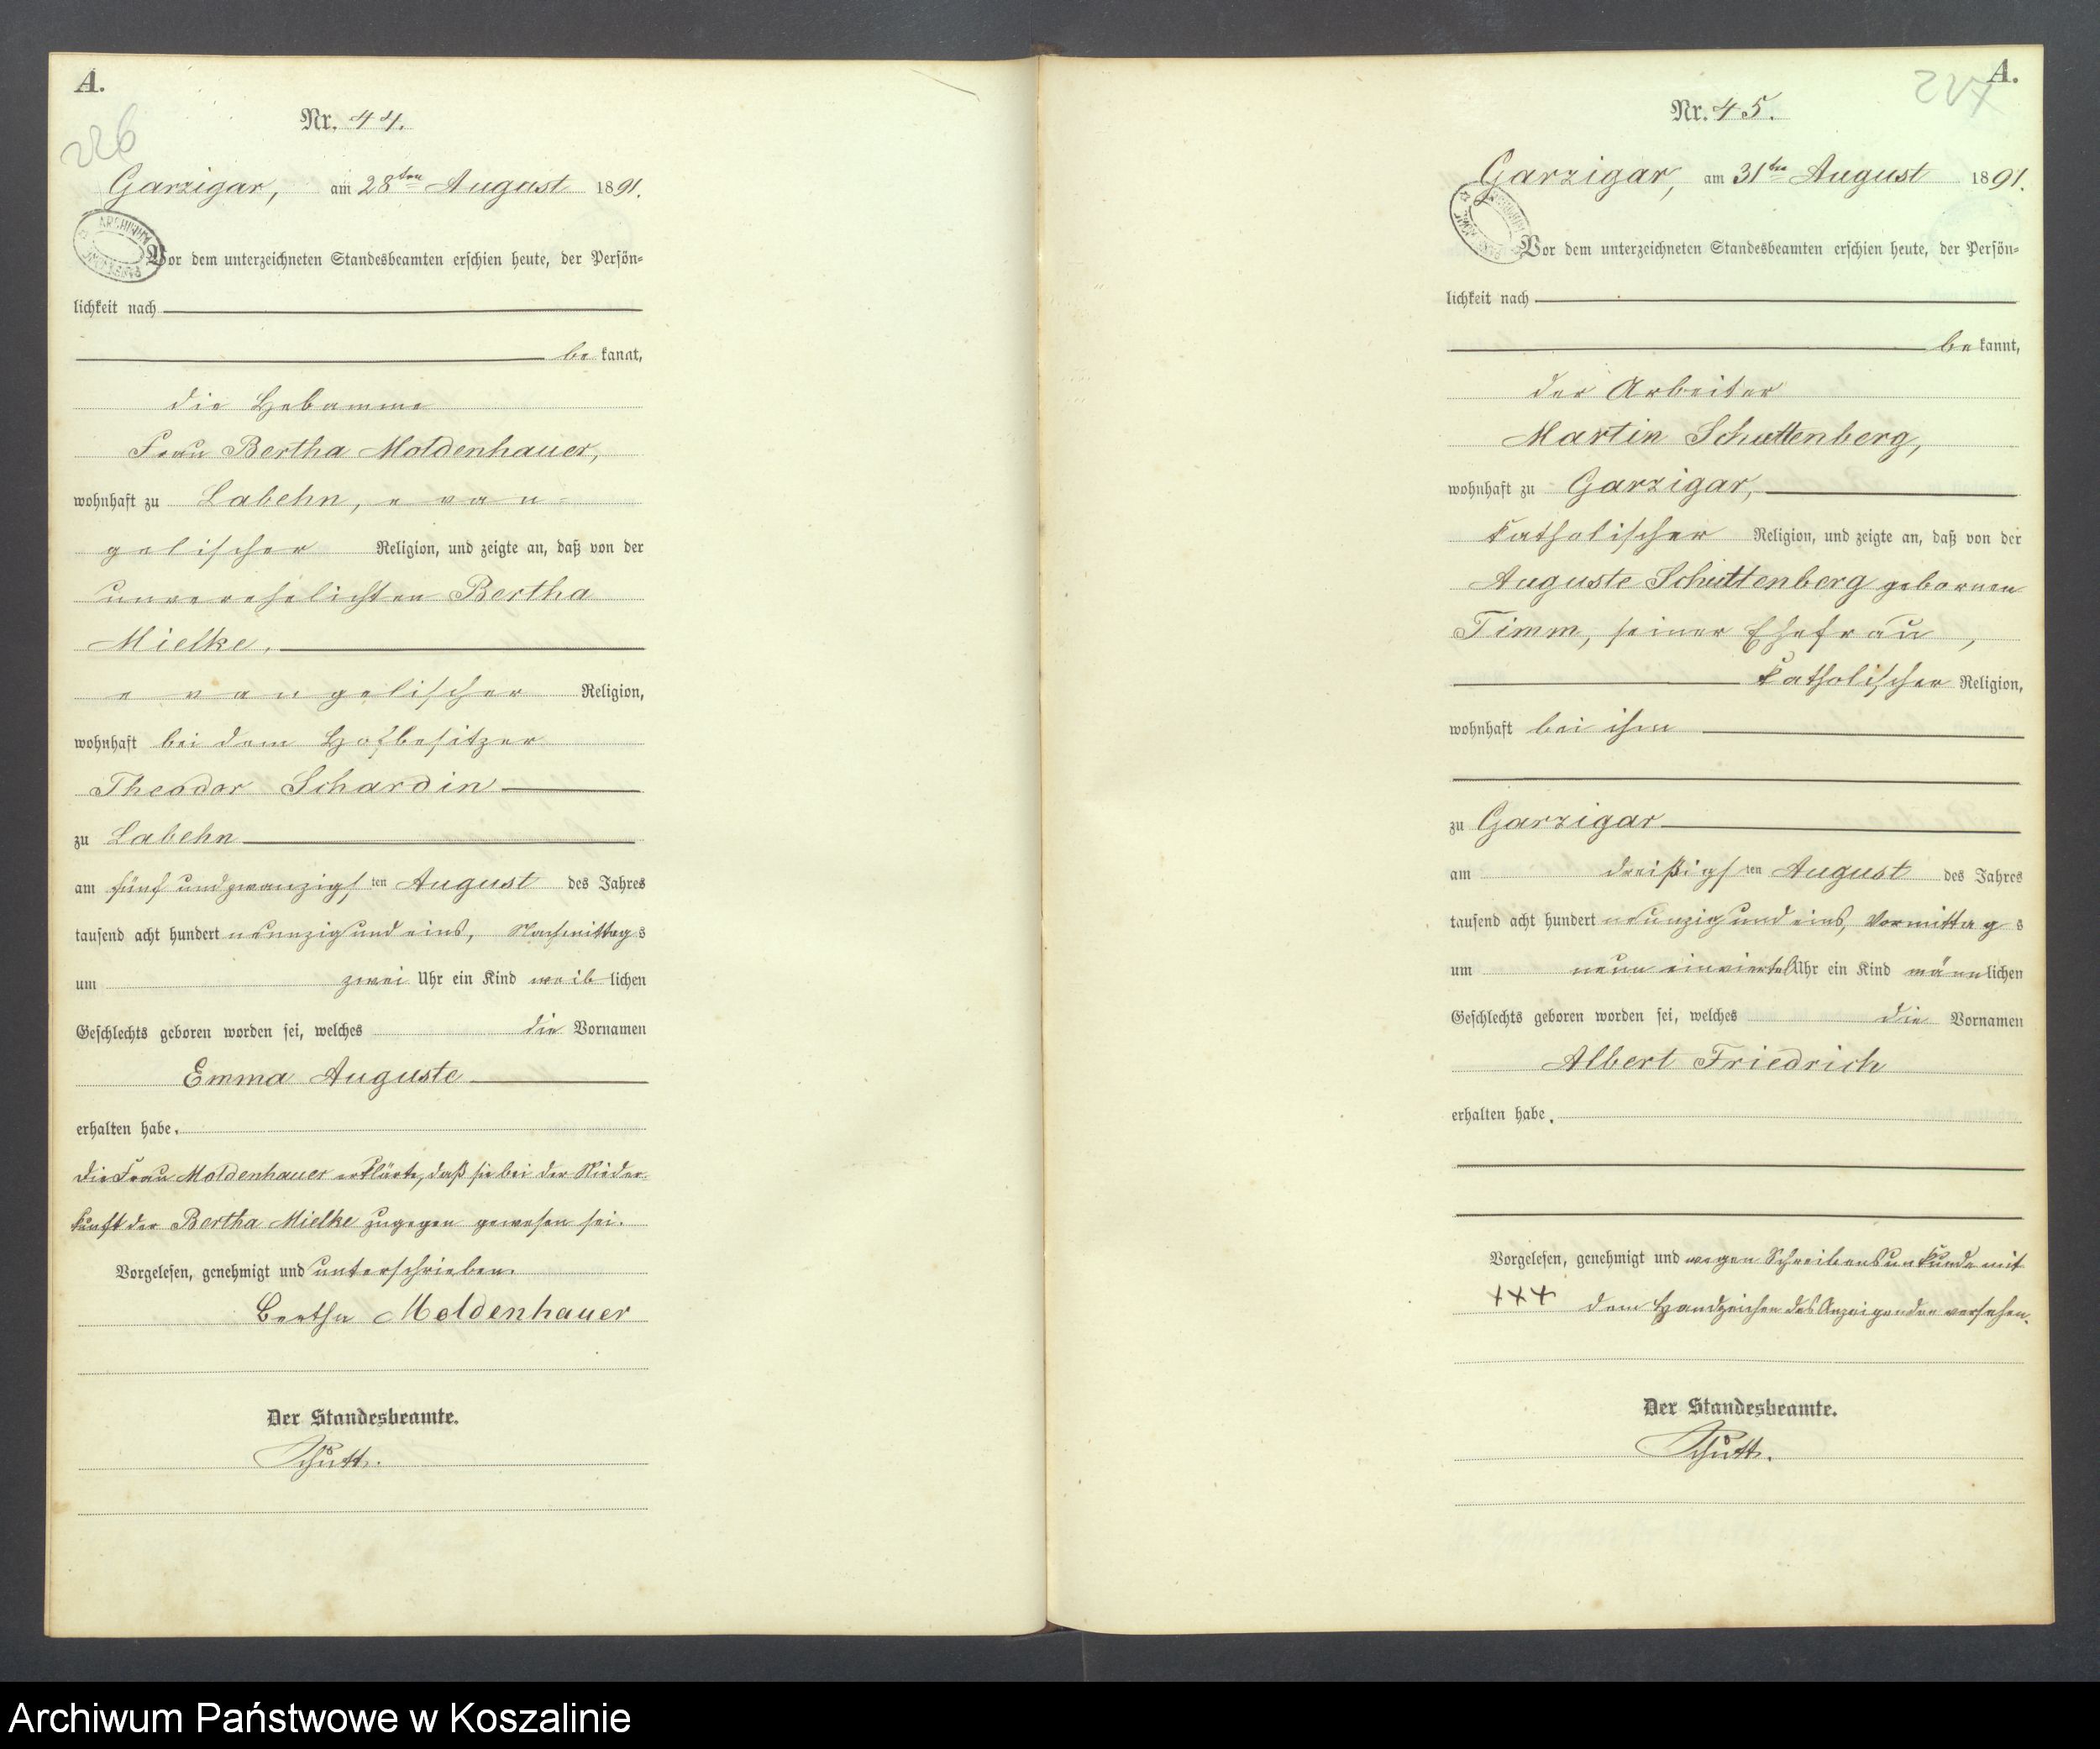 A.
226
Nr. 44.
Garzigar, am 28ten August 1891.
ARCHIWUM
Vor dem unterzeichneten Standesbeamten erschien heute, der Persön-
lichkeit nach
bekannt,
die Hebamme
Frau Bertha Moldenhauer,
wohnhaft zu Labehn, evan-
gelischer Religion, und zeigte an, daß von der
unverehelichten Bertha
Mielke,
evangelischer Religion,
wohnhaft bei dem Hofbesitzer
Theodor Schardin
zu Labehn
am fünf und zwanzigsten August des Jahres
tausend acht hundert neunzig und eins, Nachmittags
um zwei Uhr ein Kind weiblichen
Geschlechts geboren worden sei, welches die Vornamen
Emma Auguste
erhalten habe.
Die Frau Moldenhauer erklärte, daß sie bei der Nieder-
kunft der Bertha Mielke zugegen gewesen sei.
Vorgelesen, genehmigt und unterschrieben.
Bertha Moldenhauer
Der Standesbeamte.
Schütt.
A.
227
Nr. 45.
Garzigar, am 31ten August 1891.
Vor dem unterzeichneten Standesbeamten erschien heute, der Persön-
lichkeit nach
bekannt,
der Arbeiter
Martin Schuttenberg,
wohnhaft zu Garzigar,
katholischer Religion, und zeigte an, daß von der
Auguste Schuttenberg gebornen
Timm, seiner Ehefrau,
katholischer Religion,
wohnhaft bei ihm
zu Garzigar
am dreißigsten August des Jahres
tausend acht hundert neunzig und eins, Vormittags
um neun einviertel Uhr ein Kind männlichen
Geschlechts geboren worden sei, welches die Vornamen
Albert Friedrich
erhalten habe.
Vorgelesen, genehmigt und wegen Schreibensunkunde mit
+++ dem Handzeichen des Anzeigenden versehen.
Der Standesbeamte.
Schütt.
Archiwum Państwowe w Koszalinie